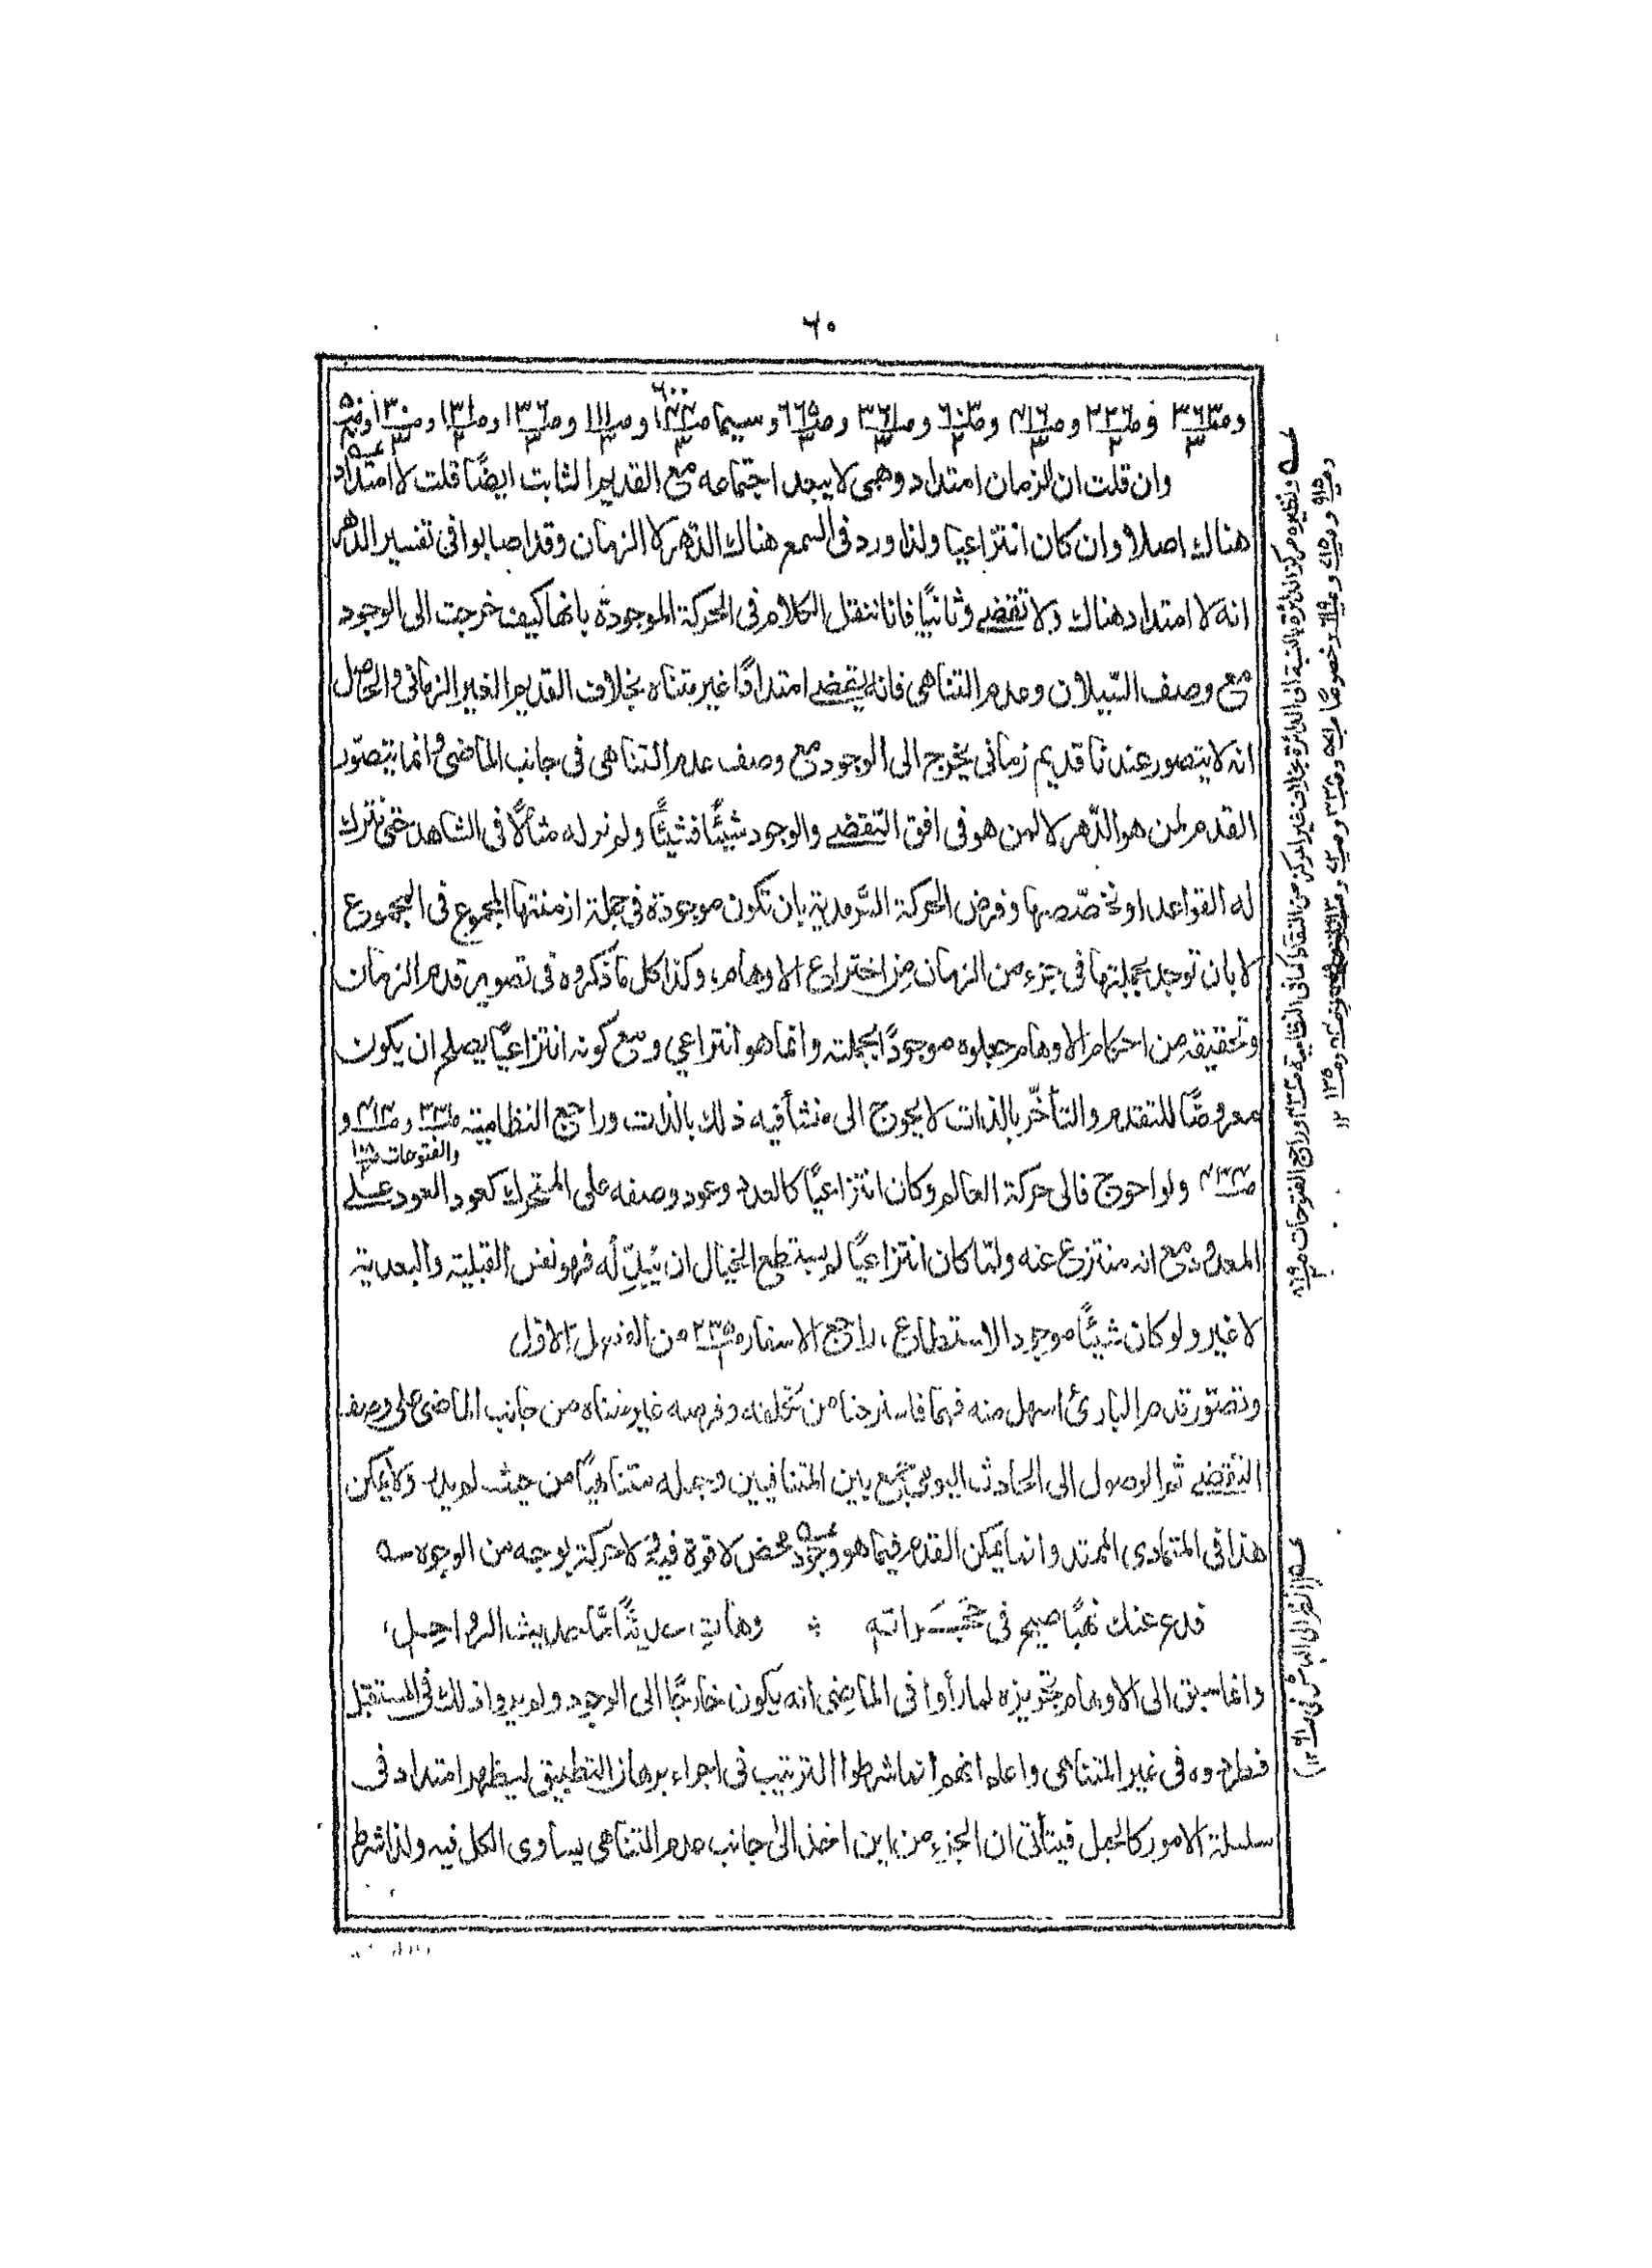 ٦٠
وان قلت ان الزمان امتداد وهمى لا يبعد اجتماعه مع القديم الثابت ايضًا قلت لا امتداد
هناك اصلا وان كان انتزاعيا ولذا ورد فى السمع هناك الدهر لا الزمان وقد اصابوا فى تفسير الدهر
انه لا امتداد هناك ولا تقضے وثانيًا فانا ننقل الكلام فى الحركة الموجودة بانها كيف خرجت الى الوجود
مع وصف السّيلان وعدم التناهى فانه يقضے امتدادًا غير متناه بخلاف القديم الغير الزمانى والحاصل
انه لا يتصور عندنا قديم زمانى يخرج الى الوجود مع وصف عدم التناهى فى جانب الماضى وانما يتصوّر
القدم لمن هو الدّهر لا لمن هو فى افق التّقضے والوجود شيئًا فشيئًا ولم نر له مثالًا فى الشاهد حتى نترك
له القواعد او نخصّصها وفرض الحركة السّرمدية بان تكون موجودة فى جملة ازمنتها المجموع فى المجموع
لا بان توجد بجملتها فى جزء من الزمان من اختراع الاوهام، وكذا كل ما ذكروه فى تصوير قدم الزمان
وتحقيقه من احكام الاوهام جعلوه موجودًا بجملته وانما هو انتزاعي ومع كونه انتزاعيًا يصلح ان يكون
معروضًا للتقدم والتأخّر بالذات لا يحوج الى منشأ فيه ذلك بالذات وراجع النظامية
والفتوحات
ولو احوج فالى حركة العالم وكان انتزاعيًا كالعدد وعود وصفه على المتحرك كعود العود علے
المعدود مع انه منتزع عنه ولمّا كان انتزاعيًا لم يستطع الخيال ان يبدّله فهو نفس القبلية والبعدية
لا غير ولو كان شيئًا موجودا لاستطاع، راجع الاسفار من الفصل الاول
وتصوّر قدم البارئ اسهل منه فهما فاسترحنا من تكلفه وفرضه غير متناه من جانب الماضى على وصف
التقضے ثم الوصول الى الحادث اليومى جمع بين المتنافيين وجعله متناهيًا من حيث لم يدر ولا يمكن
هذا فى المتمادى الممتد وانما يمكن القدم فيما هو وجود محض لا قوة فيه ولا حركة بوجه من الوجوه سه
فدع عنك نهبًا صيح فى حَجَرَاته ؞ وهات حديثًا مّا حديث الرواحل،
وانما سبق الى الاوهام تجويزه لما رأوا فى الماضى انه يكون خارجًا الى الوجود ولم يروا ذلك فى المستقبل
فطردوه فى غير المتناهى واعلم انهم انما شرطوا الترتيب فى اجراء برهان التطبيق ليظهر امتداد فى
سلسلة الامور كالحبل فيتأتى ان الجزء من اين اخذ الى جانب عدم التناهى يساوى الكل فيه ولذا شرط
ونظيره مركز الدائرة بالنسبة الى الدائرة بخلاف غير المركز من النقاط كما فى النظامية وراجع الفتوحات